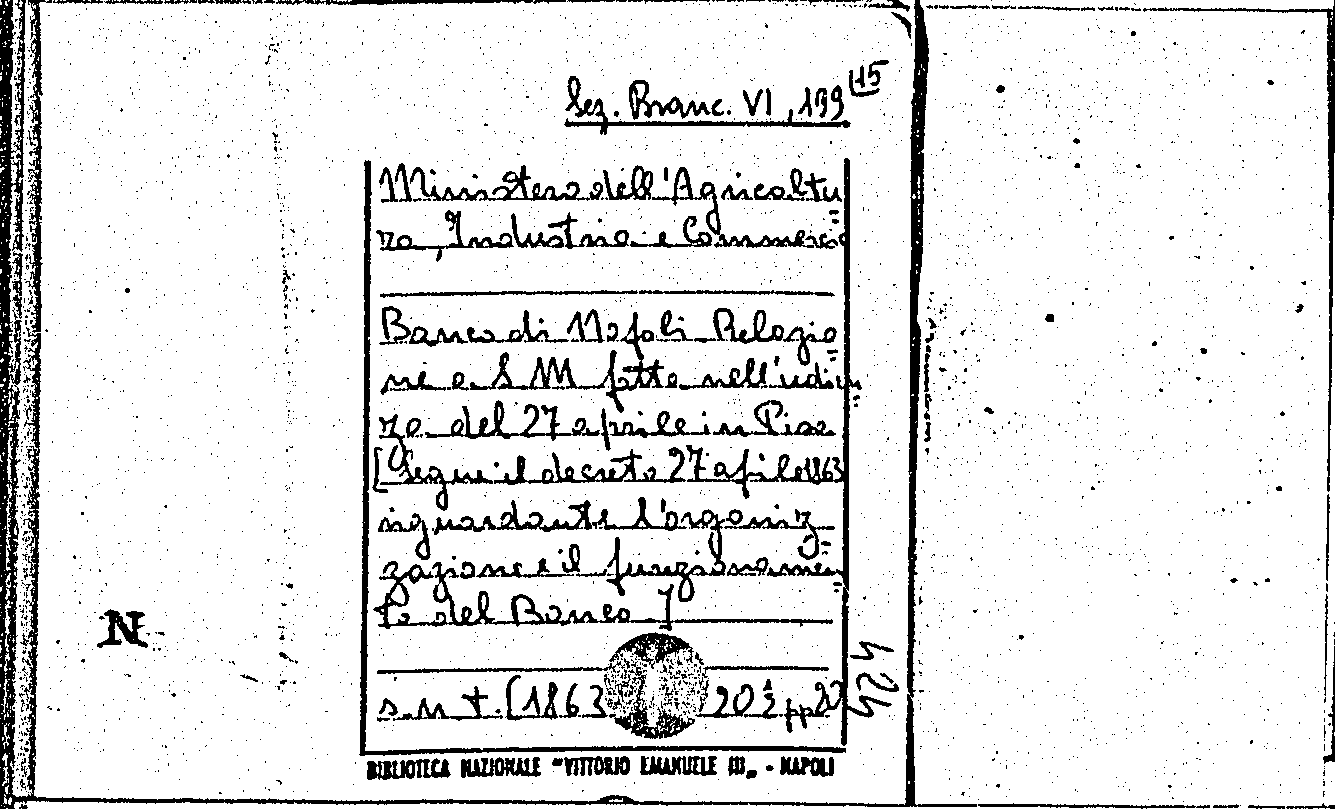 Sez. Branc. VI, 199 (15
Ministero dell'Agricoltu=
ra, Industria e Commercio
Banco di Napoli Relazio=
ne a S M fatta nell'udien=
za del 27 aprile in Pisa
[Segue il decreto 27 aprile 1863
riguardante l'organiz=
zazione e il funzionamen=
to del Banco]
s.n.t. [1863 20½ pp
424
N
BIBLIOTECA NAZIONALE "VITTORIO EMANUELE III„ - NAPOLI